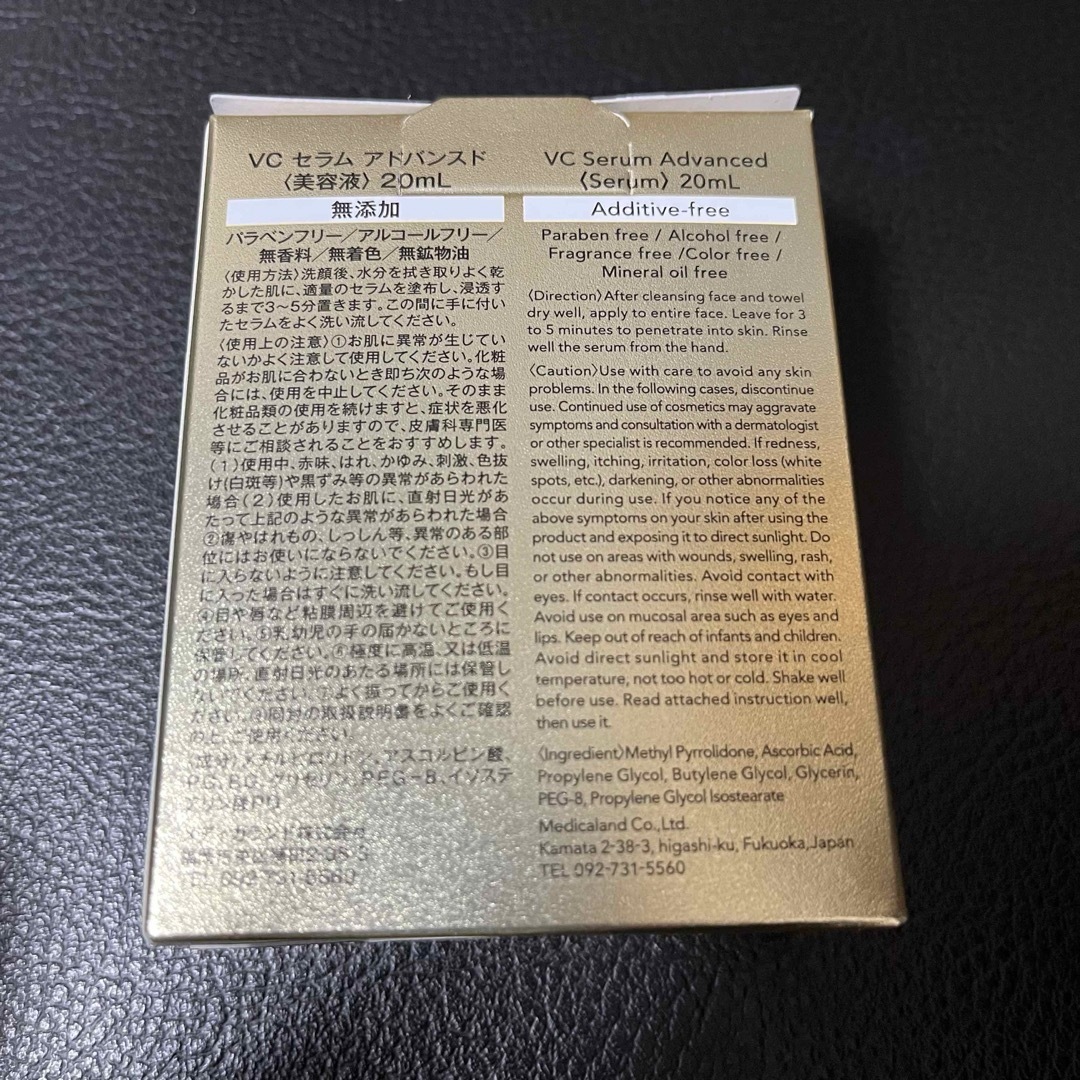 VC セラム アドバンスド
〈美容液〉 20mL
無添加
パラベンフリー／アルコールフリー／
無香料／無着色／無鉱物油
〈使用方法〉洗顔後、水分を拭き取りよく乾
かした肌に、適量のセラムを塗布し、浸透す
るまで3〜5分置きます。この間に手に付い
たセラムをよく洗い流してください。
〈使用上の注意〉①お肌に異常が生じてい
ないかよく注意して使用してください。化粧
品がお肌に合わないとき即ち次のような場
合には、使用を中止してください。そのまま
化粧品類の使用を続けますと、症状を悪化
させることがありますので、皮膚科専門医
等にご相談されることをおすすめします。
（1）使用中、赤味、はれ、かゆみ、刺激、色抜
け(白斑等)や黒ずみ等の異常があらわれた
場合（2）使用したお肌に、直射日光があ
たって上記のような異常があらわれた場合
②傷やはれもの、しっしん等、異常のある部
位にはお使いにならないでください。③目
に入らないように注意してください。もし目
に入った場合はすぐに洗い流してください。
④目や唇など粘膜周辺を避けてご使用く
ださい。⑤乳幼児の手の届かないところに
保管してください。⑥極度に高温、又は低温
の場所、直射日光のあたる場所には保管し
ないでください。⑦よく振ってからご使用く
ださい。⑧同封の取扱説明書をよくご確認
の上、ご使用ください。
〈成分〉メチルピロリドン、アスコルビン酸、
PG、BG、グリセリン、PEG-8、イソステ
アリン酸PG
メディカランド株式会社
TEL 092-731-5560
VC Serum Advanced
〈Serum〉 20mL
Additive-free
Paraben free / Alcohol free /
Fragrance free /Color free /
Mineral oil free
〈Direction〉After cleansing face and towel
dry well, apply to entire face. Leave for 3
to 5 minutes to penetrate into skin. Rinse
well the serum from the hand.
〈Caution〉Use with care to avoid any skin
problems. In the following cases, discontinue
use. Continued use of cosmetics may aggravate
symptoms and consultation with a dermatologist
or other specialist is recommended. If redness,
swelling, itching, irritation, color loss (white
spots, etc.), darkening, or other abnormalities
occur during use. If you notice any of the
above symptoms on your skin after using the
product and exposing it to direct sunlight. Do
not use on areas with wounds, swelling, rash,
or other abnormalities. Avoid contact with
eyes. If contact occurs, rinse well with water.
Avoid use on mucosal area such as eyes and
lips. Keep out of reach of infants and children.
Avoid direct sunlight and store it in cool
temperature, not too hot or cold. Shake well
before use. Read attached instruction well,
then use it.
〈Ingredient〉Methyl Pyrrolidone, Ascorbic Acid,
Propylene Glycol, Butylene Glycol, Glycerin,
PEG-8, Propylene Glycol Isostearate
Medicaland Co.,Ltd.
Kamata 2-38-3, higashi-ku, Fukuoka,Japan
TEL 092-731-5560